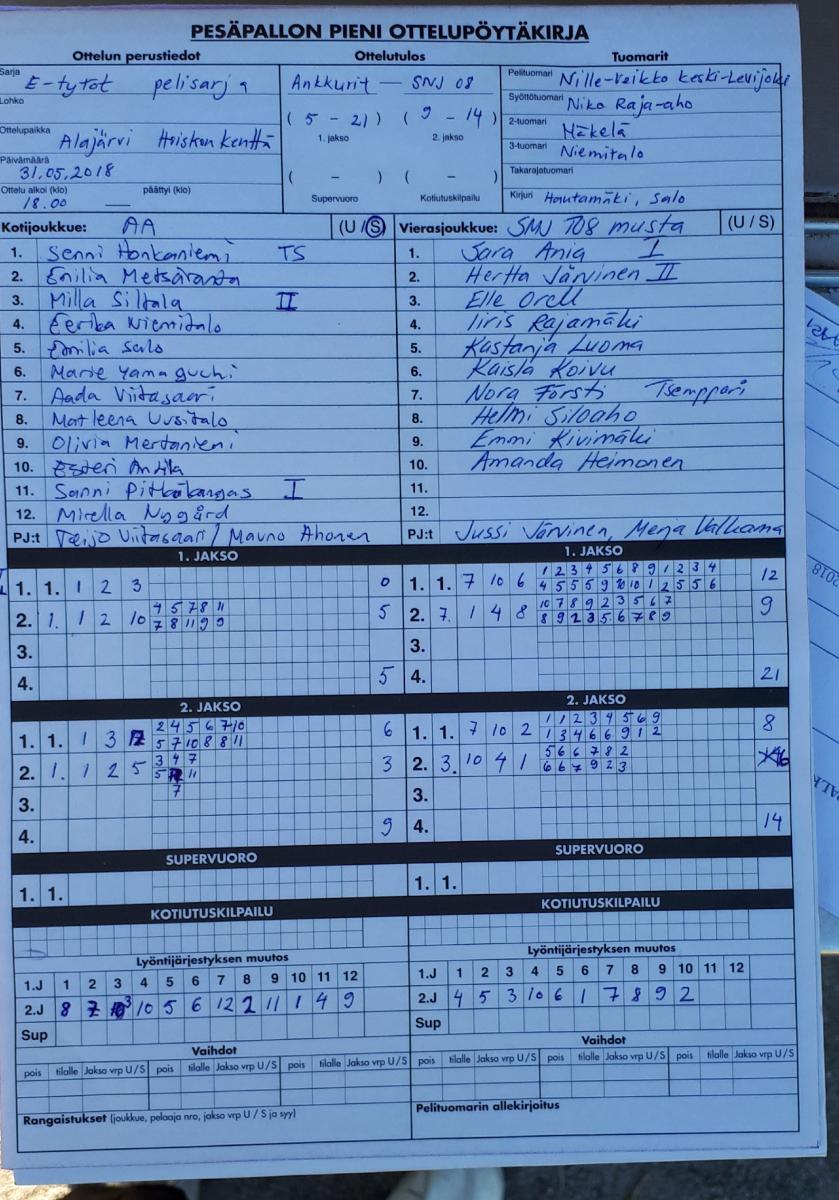 PESÄPALLON PIENI OTTELUPÖYTÄKIRJA
Ottelun perustiedot Ottelutulos Tuomarit
Sarja E-tytöt pelisarja
Lohko
Ottelupaikka Alajärvi Hoiskon kenttä
Päivämäärä 31.05.2018
Ottelu alkoi (klo) 18.00 päättyi (klo) —
Ankkurit — SNJ 08
( 5 - 21 ) ( 9 - 14 )
1. jakso 2. jakso
( - ) ( - )
Supervuoro Kotiutuskilpailu
Pelituomari Nille-Veikko Keski-Levijoki
Syöttötuomari Niko Raja-aho
2-tuomari Mäkelä
3-tuomari Niemitalo
Takarajatuomari
Kirjuri Hautamäki, Salo
Kotijoukkue: AA (U / S)
1. Senni Honkaniemi TS
2. Emilia Metsäranta
3. Milla Siltala II
4. Eerika Niemitalo
5. Emilia Salo
6. Marie Yamaguchi
7. Aada Viitasaari
8. Matleena Uusitalo
9. Olivia Mertaniemi
10. Esteri Anttila
11. Sanni Pitkäkangas I
12. Mirella Nygård
PJ:t Teijo Viitasaari / Mauno Ahonen
Vierasjoukkue: SMJ T08 musta (U / S)
1. Sara Ania I
2. Hertta Järvinen II
3. Elle Orell
4. Iiris Rajamäki
5. Kastanja Luoma
6. Kaisla Koivu
7. Nora Försti Tsemppari
8. Helmi Siloaho
9. Emmi Kivimäki
10. Amanda Heimonen
11.
12.
PJ:t Jussi Järvinen, Merja Valkama
1. JAKSO
1. 1. 1 2 3 0
2. 1. 1 2 10 4 5 7 8 11 5
7 8 11 9 9
3.
4. 5
1. JAKSO
1. 1. 7 10 6 1 2 3 4 5 6 8 9 1 2 3 4 12
4 5 5 5 9 10 10 1 2 5 5 6
2. 7. 1 4 8 10 7 8 9 2 3 5 6 7 9
8 9 2 3 5 6 7 8 9
3.
4. 21
2. JAKSO
1. 1. 1 3 12 2 4 5 6 7 10 6
5 7 10 8 8 11
2. 1. 1 2 5 3 4 7 3
5 11
7
3.
4. 9
2. JAKSO
1. 1. 7 10 2 1 1 2 3 4 5 6 9 8
1 3 4 6 6 9 1 2
2. 3. 10 4 1 5 6 6 7 8 2 6
6 6 7 9 2 3
3.
4. 14
SUPERVUORO
1. 1.
SUPERVUORO
1. 1.
KOTIUTUSKILPAILU
KOTIUTUSKILPAILU
Lyöntijärjestyksen muutos
1.J 1 2 3 4 5 6 7 8 9 10 11 12
2.J 8 7 3 10 5 6 12 2 11 1 4 9
Sup
Lyöntijärjestyksen muutos
1.J 1 2 3 4 5 6 7 8 9 10 11 12
2.J 4 5 3 10 6 1 7 8 9 2
Sup
Vaihdot
pois tilalle Jakso vrp U / S pois tilalle Jakso vrp U / S pois tilalle Jakso vrp U / S
Vaihdot
pois tilalle Jakso vrp U / S pois tilalle Jakso vrp U / S pois tilalle Jakso vrp U / S
Rangaistukset (joukkue, pelaaja nro, jakso vrp U / S ja syy)
Pelituomarin allekirjoitus